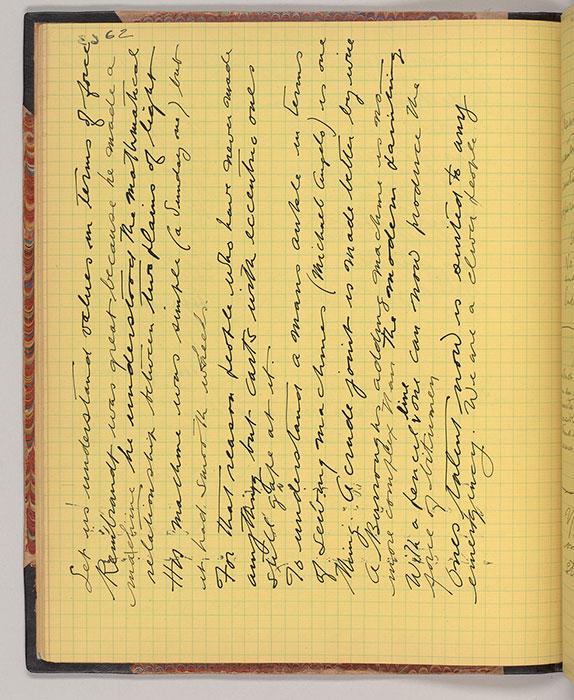 62
Let us understand values in terms of force
Rembrandt was great because he made a
machine he understood the mathmatical
relationship between two plains of light
His machine was simple (a Sunday one) but
it had smooth wheels.
For that reason people who have never made
anything but carts with eccentric ones
still gape at it.
To understand a mans ankle in terms
of sewing machines (Michael Anglo) is one
thing. A crude joint is made better by wire
A Burroughs adding machine is no
more complex than the modern painting
With a pencil line one can now produce the
force of bitumen
Ones talent now is suited to any
emergincy. We are a clever people